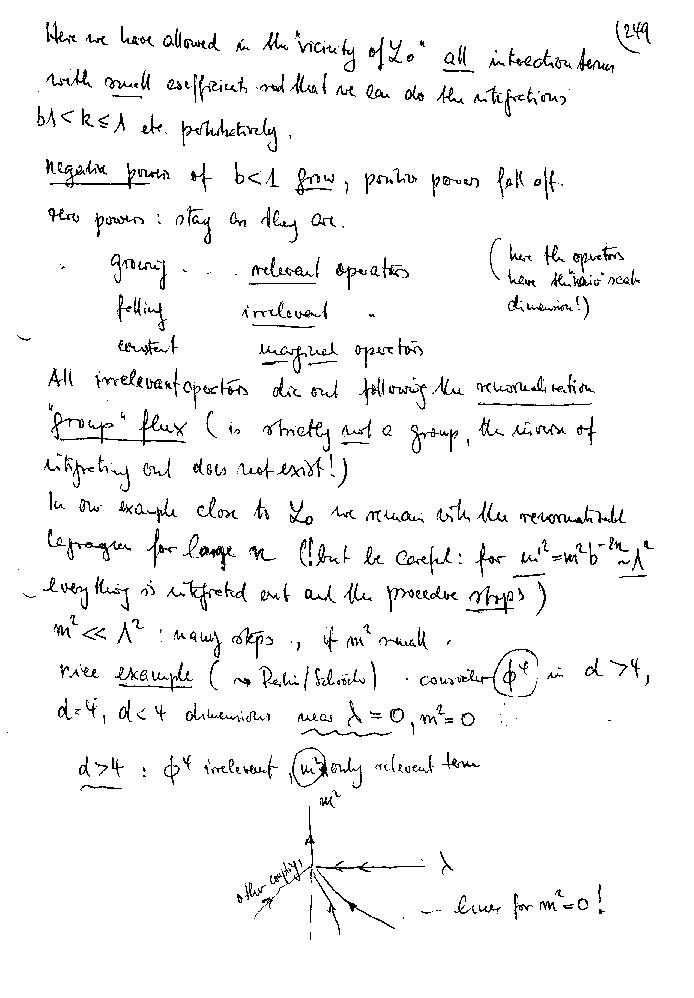 (249
Here we have allowed in the "vicinity of L₀" all interaction terms
with small coefficients such that we can do the integrations
bΛ<k≤Λ etc. perturbatively.
negative powers of b<1 grow, positive powers fall off.
zero powers: stay as they are.
growing . . . relevant operators
(here the operators
have the "naive" scale
dimension!)
falling irrelevant "
constant marginal operators
All irrelevant operators die out following the renormalization
"group" flux (is strictly not a group, the inverse of
integrating out does not exist!)
In our example close to L₀ we remain with the renormalizable
Lagrangean for large n (!but be careful: for m'²=m²b⁻²ⁿ~Λ²
everything is integrated out and the procedure stops)
m² << Λ² : many steps, if m² small.
nice example (→ Peskin/Schroeder) . consider ϕ⁴ in d>4,
d=4, d<4 dimensions near λ=0, m²=0 :
d>4 : ϕ⁴ irrelevant, m² only relevant term
m²
other couplings
λ
-- lines for m²=0!